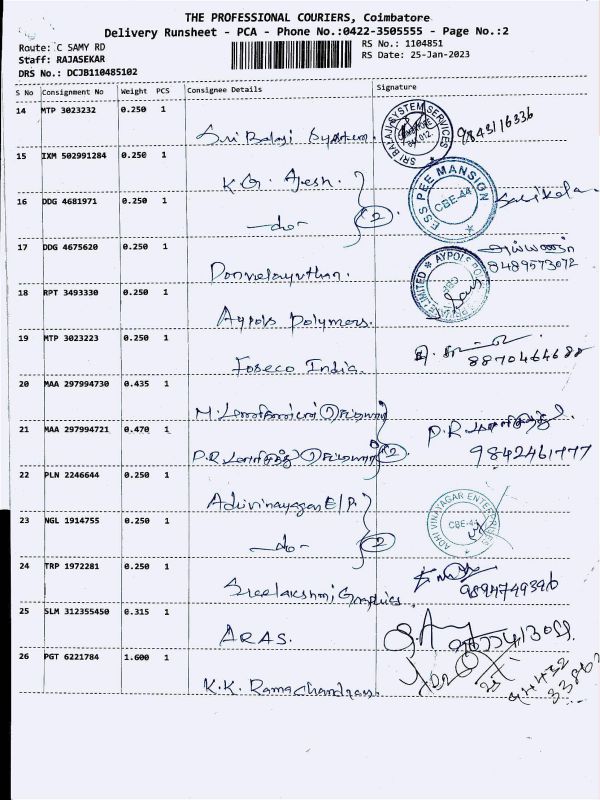 THE PROFESSIONAL COURIERS, Coimbatore
Delivery Runsheet - PCA - Phone No.:0422-3505555 - Page No.:2
Route: C SAMY RD
RS No.: 1104851
Staff: RAJASEKAR
RS Date: 25-Jan-2023
DRS No.: DCJB110485102
S No Consignment No Weight PCS Consignee Details Signature
14 MTP 3023232 0.250 1
Sri Balaji System. SRI BALAJI SYSTEM SERVICES 9843116336
15 IXM 502991284 0.250 1
K.G. Ajesh.
16 DDG 4681971 0.250 1
-do- 2 ESS PEE MANSION CBE-44
17 DDG 4675620 0.250 1
Ponvelayuthan. 8489573072
18 RPT 3493330 0.250 1
Aypols Polymers.
19 MTP 3023223 0.250 1
Foseco India 8870464688
20 MAA 297994730 0.435 1
M.
21 MAA 297994721 0.470 1
P.R. 2 P.R. 9842461777
22 PLN 2246644 0.250 1
Adhivinayagar E/P. ADHI VINAYAGAR ENTERPRISES CBE-44
23 NGL 1914755 0.250 1
-do- 2
24 TRP 1972281 0.250 1
Sreelakshmi Graphics. 9894749396
25 SLM 312355450 0.315 1
ARAS.
26 PGT 6221784 1.600 1
K.K. Ramachandran.